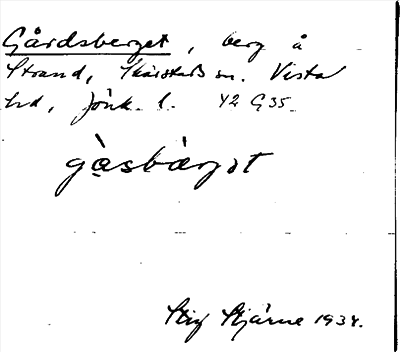 Gårdsberget, berg å
Strand, Skärstads sn. Vista
hd, Jönk. l. Y2 G35.
gàsbärgət
Stig Stjärne 1934.